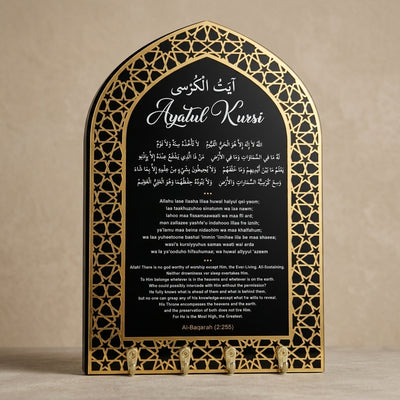 آيَتُ الْكُرْسِى
Ayatul Kursi
اللَّهُ لَا إِلَٰهَ إِلَّا هُوَ الْحَيُّ الْقَيُّومُ لَا تَأْخُذُهُ سِنَةٌ وَلَا نَوْمٌ
لَهُ مَا فِي السَّمَاوَاتِ وَمَا فِي الْأَرْضِ مَنْ ذَا الَّذِي يَشْفَعُ عِنْدَهُ إِلَّا بِإِذْنِهِ
يَعْلَمُ مَا بَيْنَ أَيْدِيهِمْ وَمَا خَلْفَهُمْ وَلَا يُحِيطُونَ بِشَيْءٍ مِنْ عِلْمِهِ إِلَّا بِمَا شَاءَ
وَسِعَ كُرْسِيُّهُ السَّمَاوَاتِ وَالْأَرْضَ وَلَا يَئُودُهُ حِفْظُهُمَا وَهُوَ الْعَلِيُّ الْعَظِيمُ
Allahu laaa ilaaha illaa huwal haiyul qai-yoom;
laa taakhuzuhoo sinatunw wa laa nawm;
lahoo maa fissamaawaati wa maa fil ard;
man zallazee yashfa'u indahooo illaa fre iznih;
ya'lamu maa beina nideohim wa maa khalfahum;
wa laa yuheetoone beshai 'immin 'ilmihee illa be maa shaeea;
wasi'a kursiyyuhus samaae waati wal arda
wa la ya'ooduho hifkuhumaa; wa huwal allyyul 'azeem
Allah! There is no god worthy of worship except Him, the Ever-Living, All-Sustaining.
Neither drowsiness ver sleep overtakes Him.
To Him belongs whatever is in the heavens and whatever is on the earth.
Who could possibly intercede with Him without the permission?
He fully knows what is ahead of them and what is behind them.
but no one can grasp any of his knowledge-except what he wills to reveal.
His Throne encompasses the heavens and the earth,
and the preservation of both does not tire Him.
For He is the Most High, the Greatest.
Al-Baqarah (2:255)